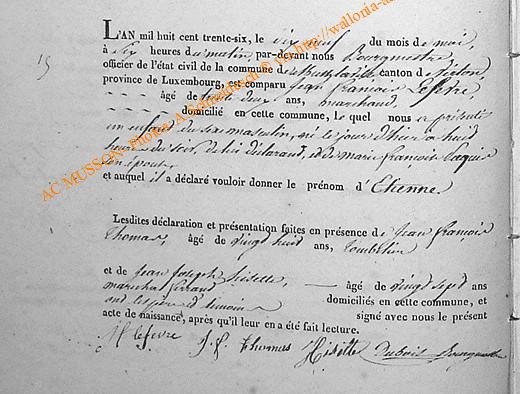 15
L'AN mil huit cent trente-six, le dix neuf du mois de mai,
à six heures du matin, par-devant nous Bourgmestre
officier de l'état civil de la commune de canton de
province de Luxembourg, est comparu jean françois Lefevre
âgé de trente deux ans, marchand
domicilié en cette commune, Le quel nous a présenté
un enfant du sexe masculin, né le jour d'hier a huit
heures du soir, de lui déclarant, et de marie françoise
son épouse
et auquel il a déclaré vouloir donner le prénom d'Etienne.
Lesdites déclaration et présentation faites en présence de jean françois
thomas, âgé de vingt huit ans,
et de jean joseph âgé de vingt sept ans
marechal ferrant domiciliés en cette commune, et
ont les père et temoins signé avec nous le présent
acte de naissance, après qu'il leur en a été fait lecture.
Lefevre J. f. thomas Dubois bourgmestre
AC MUSSON- Photos A Schmadebeck © via http://wallonia-a